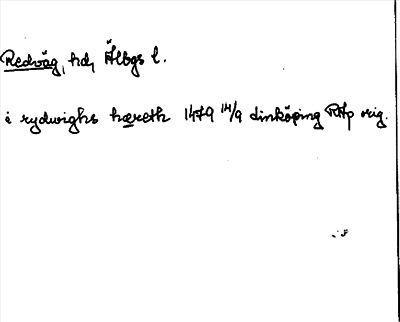 Redväg, hd, Älvbgs l.
i rydwighs hæreth 1479 14/9 Linköping RAp orig.